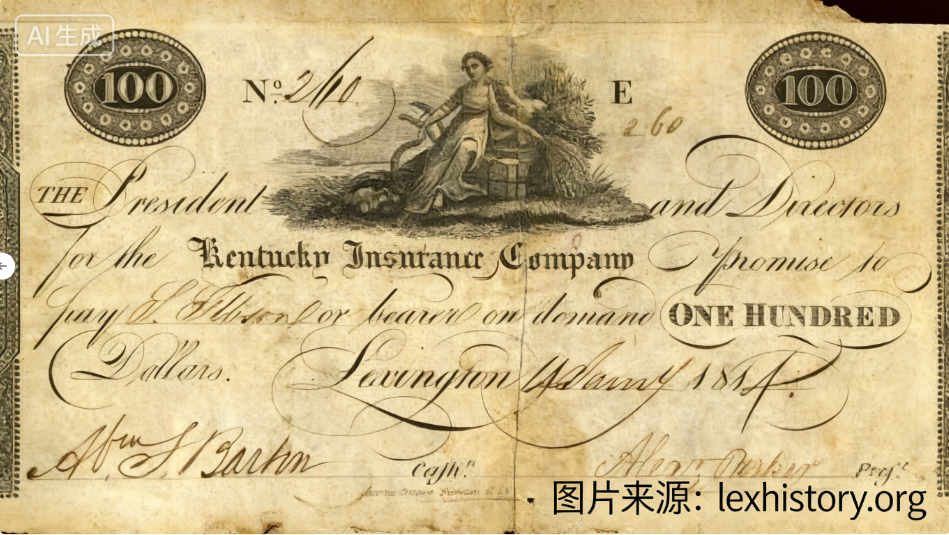 AI 生成
100 Nº. 260 E 100
260
THE President and Directors
for the Kentucky Insurance Company promise to
pay or bearer on demand ONE HUNDRED
Dollars. Lexington 1814
Wm S Barkin Cashr. Alexr Parker Prest.
图片来源：lexhistory.org